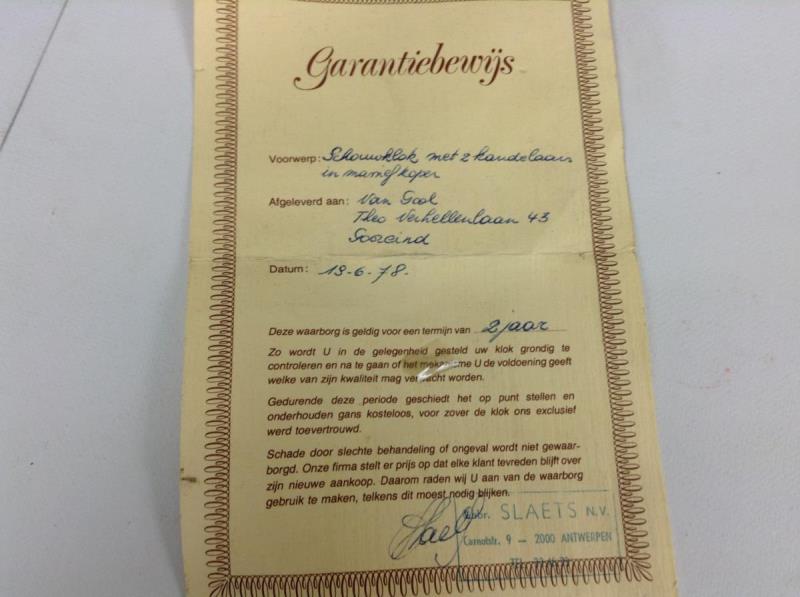 Garantiebewijs
Voorwerp: Schouwklok met 2 kandelaars
in massief koper
Afgeleverd aan: Van Gool
Theo Verhellenlaan 43
Gooreind
Datum: 19-6-78.
Deze waarborg is geldig voor een termijn van 2 jaar
Zo wordt U in de gelegenheid gesteld uw klok grondig te
controleren en na te gaan of het mekanisme U de voldoening geeft
welke van zijn kwaliteit mag verwacht worden.
Gedurende deze periode geschiedt het op punt stellen en
onderhouden gans kosteloos, voor zover de klok ons exclusief
werd toevertrouwd.
Schade door slechte behandeling of ongeval wordt niet gewaar-
borgd. Onze firma stelt er prijs op dat elke klant tevreden blijft over
zijn nieuwe aankoop. Daarom raden wij U aan van de waarborg
gebruik te maken, telkens dit moest nodig blijken.
SLAETS N.V.
Carnotstr. 9 - 2000 ANTWERPEN
TEL.